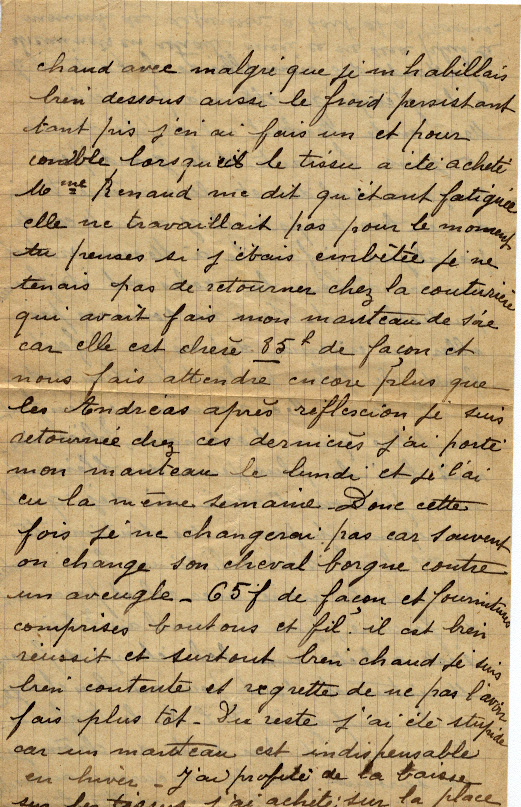 chaud avec malgré que je m'habillais
bien dessous aussi le froid persistant
tant pis j'en ai fais un et pour
comble lorsque le tissu a été acheté
Mme Renaud me dit qu'étant fatiguée
elle ne travaillait pas pour le moment
tu penses si j'étais embêtée je ne
tenais pas de retourner chez la couturière
qui avait fais mon manteau de soie
car elle est chère 85f de façon et
nous fais attendre encore plus que
les Andréas après réflescion je suis
retournée chez ces dernières j'ai porté
mon manteau le lundi et je l'ai
eu la même semaine - Donc cette
fois je ne changerai pas car souvent
on change son cheval borgne contre
un aveugle - 65f de façon et fournitures
comprises boutons et fil. il est bien
réussit et surtout bien chaud je suis
bien contente et regrette de ne pas l'avoir
fais plus tôt - Du reste j'ai été stupide
car un manteau est indispensable
en hiver - J'ai profité de la baisse
sur les tissus j'ai acheté sur la place